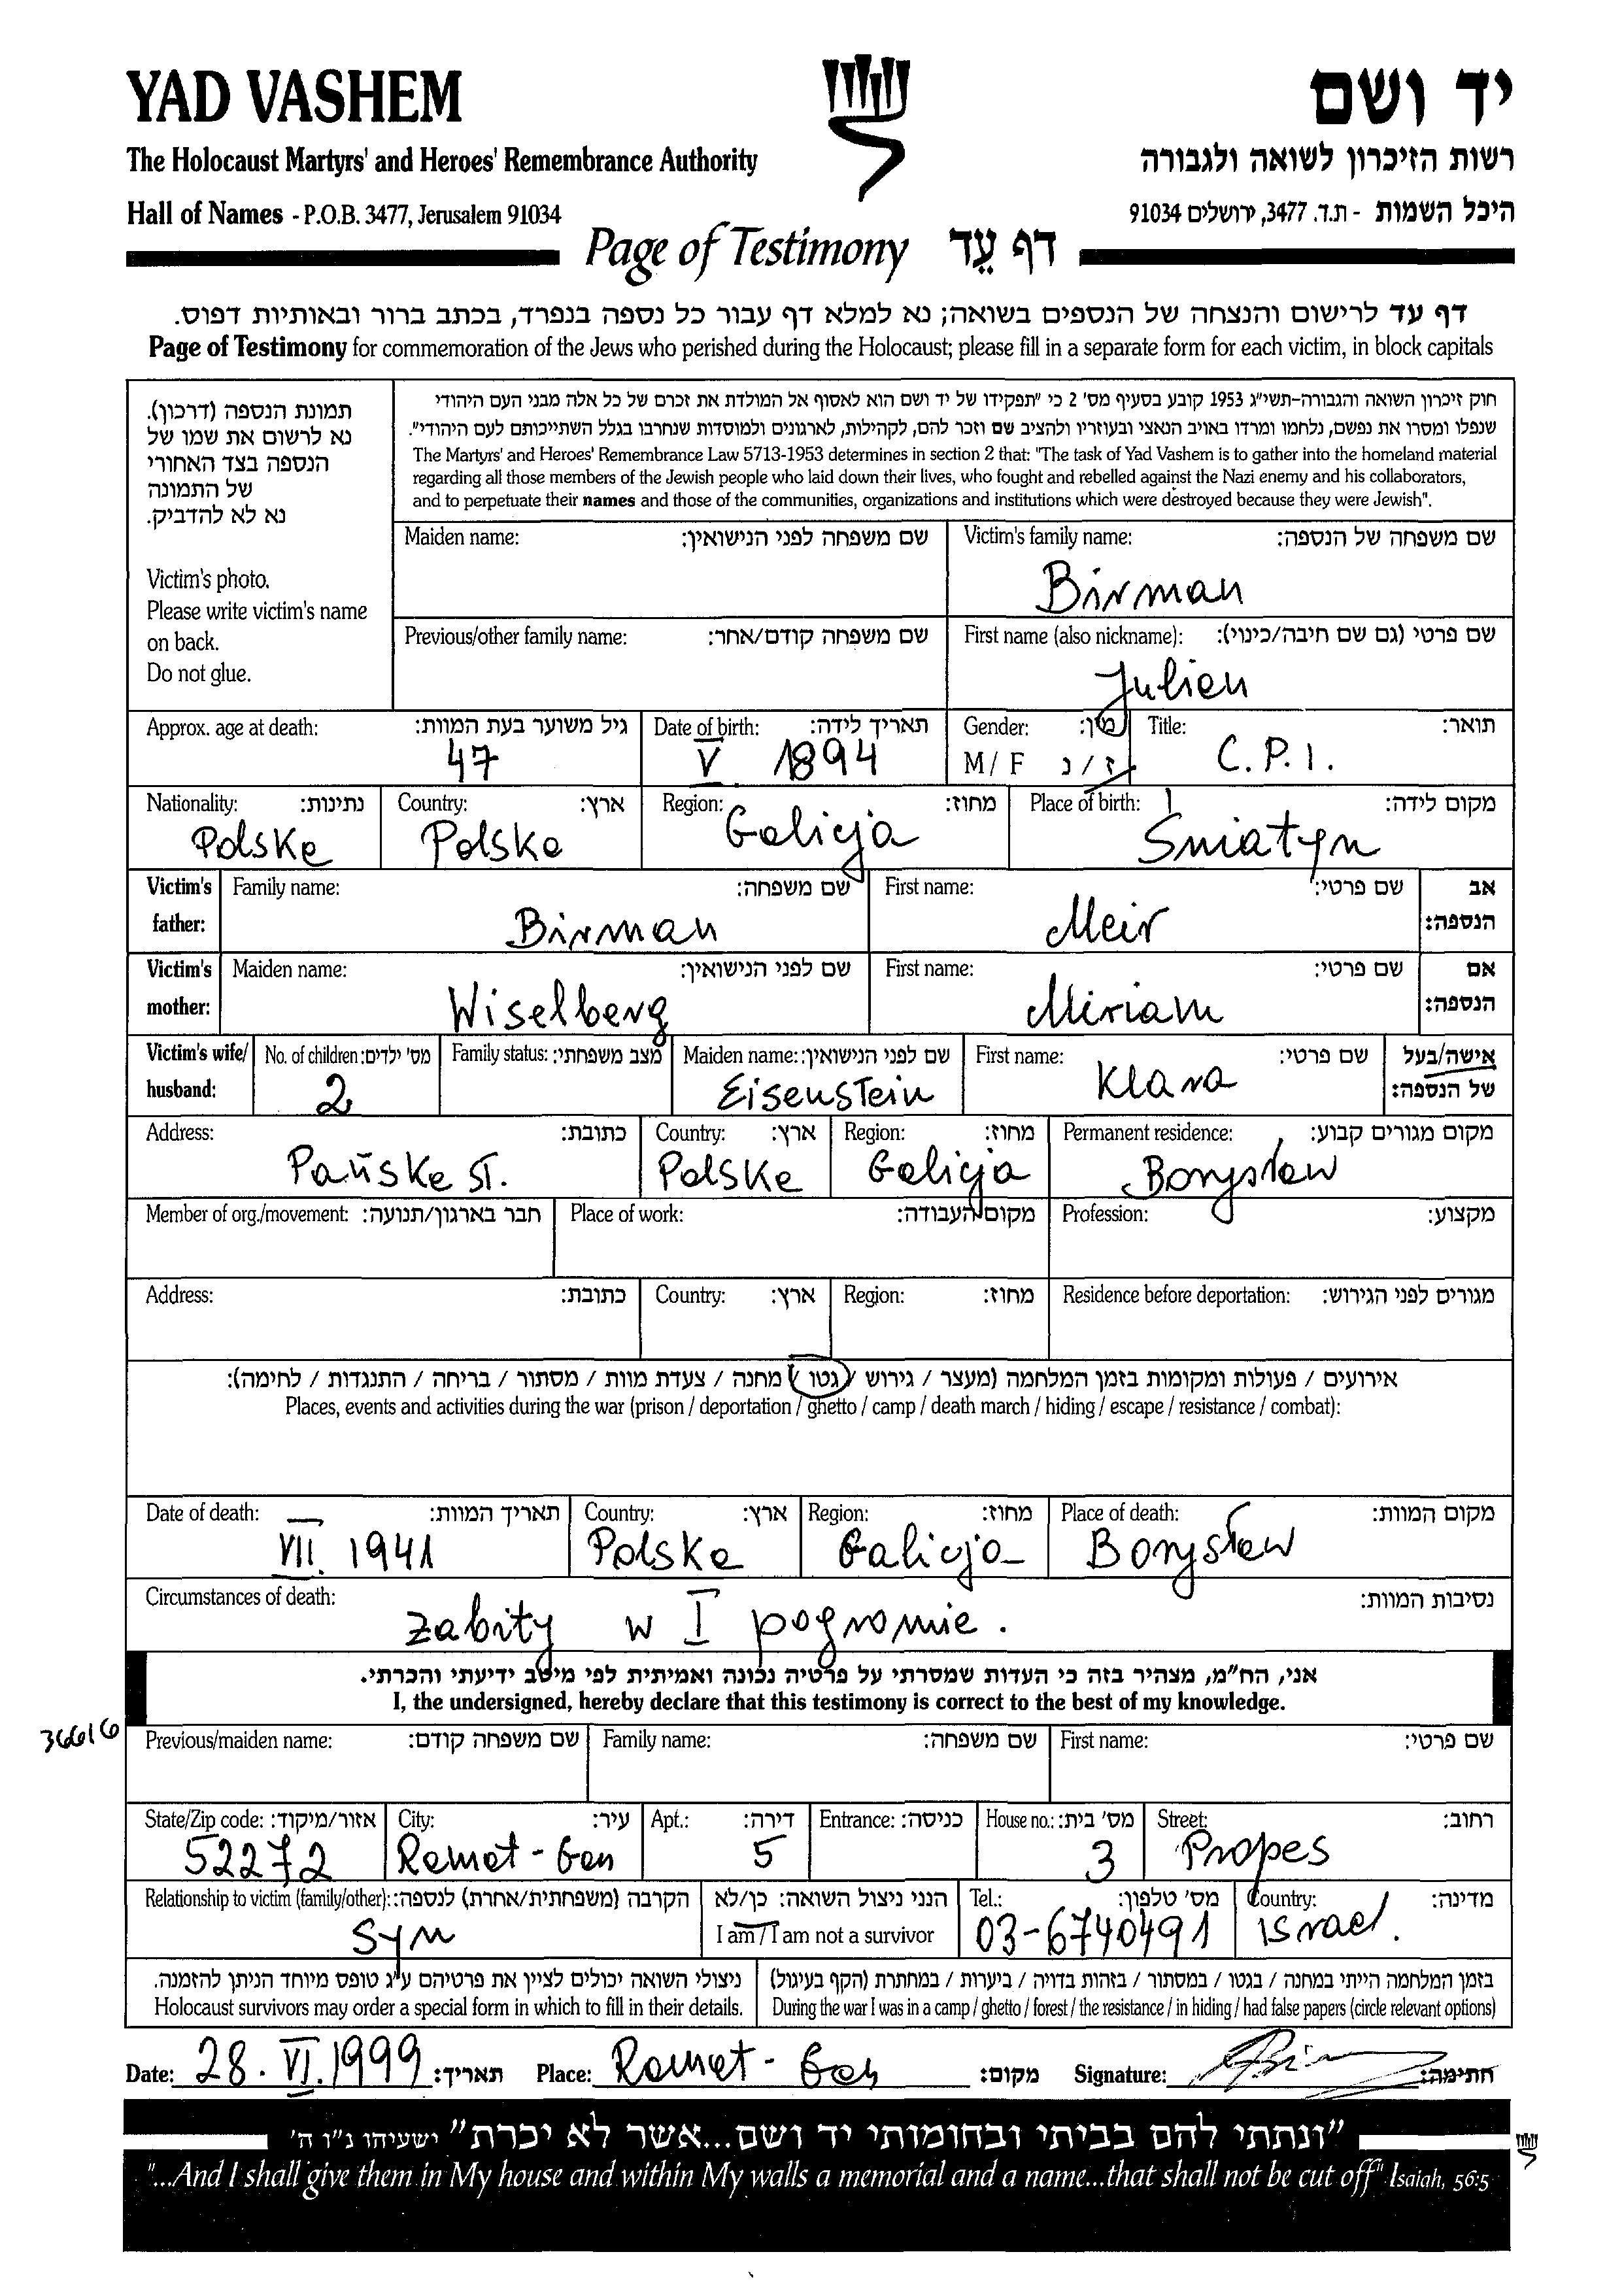 YAD VASHEM
יד ושם
The Holocaust Martyrs' and Heroes' Remembrance Authority
רשות הזיכרון לשואה ולגבורה
Hall of Names - P.O.B. 3477, Jerusalem 91034
היכל השמות - ת.ד. 3477, ירושלים 91034
Page of Testimony דף עֵד
דף עד לרישום והנצחה של הנספים בשואה; נא למלא דף עבור כל נספה בנפרד, בכתב ברור ובאותיות דפוס.
Page of Testimony for commemoration of the Jews who perished during the Holocaust; please fill in a separate form for each victim, in block capitals
תמונת הנספה (דרכון).
נא לרשום את שמו של
הנספה בצד האחורי
של התמונה
נא לא להדביק.
Victim's photo.
Please write victim's name
on back.
Do not glue.
חוק זיכרון השואה והגבורה-תשי"ג 1953 קובע בסעיף מס' 2 כי "תפקידו של יד ושם הוא לאסוף אל המולדת את זכרם של כל אלה מבני העם היהודי
שנפלו ומסרו את נפשם, נלחמו ומרדו באויב הנאצי ובעוזריו ולהציב שם וזכר להם, לקהילות, לארגונים ולמוסדות שנחרבו בגלל השתייכותם לעם היהודי".
The Martyrs' and Heroes' Remembrance Law 5713-1953 determines in section 2 that: "The task of Yad Vashem is to gather into the homeland material
regarding all those members of the Jewish people who laid down their lives, who fought and rebelled against the Nazi enemy and his collaborators,
and to perpetuate their names and those of the communities, organizations and institutions which were destroyed because they were Jewish".
Maiden name: שם משפחה לפני הנישואין:
Victim's family name: שם משפחה של הנספה:
Birman
Previous/other family name: שם משפחה קודם/אחר:
First name (also nickname): שם פרטי (גם שם חיבה/כינוי):
Julien
Approx. age at death: גיל משוער בעת המוות:
47
Date of birth: תאריך לידה:
V 1894
Gender: מין:
M / F ז / נ
Title: תואר:
C.P.I.
Nationality: נתינות:
Polska
Country: ארץ:
Polska
Region: מחוז:
Galicja
Place of birth: מקום לידה:
Sniatyn
Victim's father: אב הנספה:
Family name: שם משפחה:
Birman
First name: שם פרטי:
Meir
Victim's mother: אם הנספה:
Maiden name: שם לפני הנישואין:
Wiselberg
First name: שם פרטי:
Miriam
Victim's wife/ husband: אישה/בעל של הנספה:
No. of children: מס' ילדים:
2
Family status: מצב משפחתי:
Maiden name: שם לפני הנישואין:
Eisenstein
First name: שם פרטי:
Klara
Address: כתובת:
Pańska ST.
Country: ארץ:
Polska
Region: מחוז:
Galicja
Permanent residence: מקום מגורים קבוע:
Borysław
Member of org./movement: חבר בארגון/תנועה:
Place of work: מקום העבודה:
Profession: מקצוע:
Address: כתובת:
Country: ארץ:
Region: מחוז:
Residence before deportation: מגורים לפני הגירוש:
אירועים / פעולות ומקומות בזמן המלחמה (מעצר / גירוש / גטו / מחנה / צעדת מוות / מסתור / בריחה / התנגדות / לחימה):
Places, events and activities during the war (prison / deportation / ghetto / camp / death march / hiding / escape / resistance / combat):
Date of death: תאריך המוות:
VII. 1941
Country: ארץ:
Polska
Region: מחוז:
Galicja
Place of death: מקום המוות:
Borysław
Circumstances of death: נסיבות המוות:
zabity w I pogromie.
אני, הח"מ, מצהיר בזה כי העדות שמסרתי על פרטיה נכונה ואמיתית לפי מיטב ידיעתי והכרתי.
I, the undersigned, hereby declare that this testimony is correct to the best of my knowledge.
36616
Previous/maiden name: שם משפחה קודם:
Family name: שם משפחה:
First name: שם פרטי:
State/Zip code: אזור/מיקוד:
52272
City: עיר:
Ramat-Gan
Apt.: דירה:
5
Entrance: כניסה:
House no.: מס' בית:
3
Street: רחוב:
Propes
Relationship to victim (family/other): הקרבה (משפחתית/אחרת) לנספה:
Syn
הנני ניצול השואה: כן/לא
I am / I am not a survivor
Tel.: מס' טלפון:
03-6740491
Country: מדינה:
Israel.
ניצולי השואה יכולים לציין את פרטיהם ע"ג טופס מיוחד הניתן להזמנה.
Holocaust survivors may order a special form in which to fill in their details.
בזמן המלחמה הייתי במחנה / בגטו / במסתור / בזהות בדויה / ביערות / במחתרת (הקף בעיגול)
During the war I was in a camp / ghetto / forest / the resistance / in hiding / had false papers (circle relevant options)
Date: 28. VI. 1999 תאריך: Place: Ramat-Gan מקום: Signature: חתימה:
"ונתתי להם בביתי ובחומותי יד ושם...אשר לא יכרת" ישעיהו נ"ו ה'
"...And I shall give them in My house and within My walls a memorial and a name...that shall not be cut off" Isaiah, 56:5